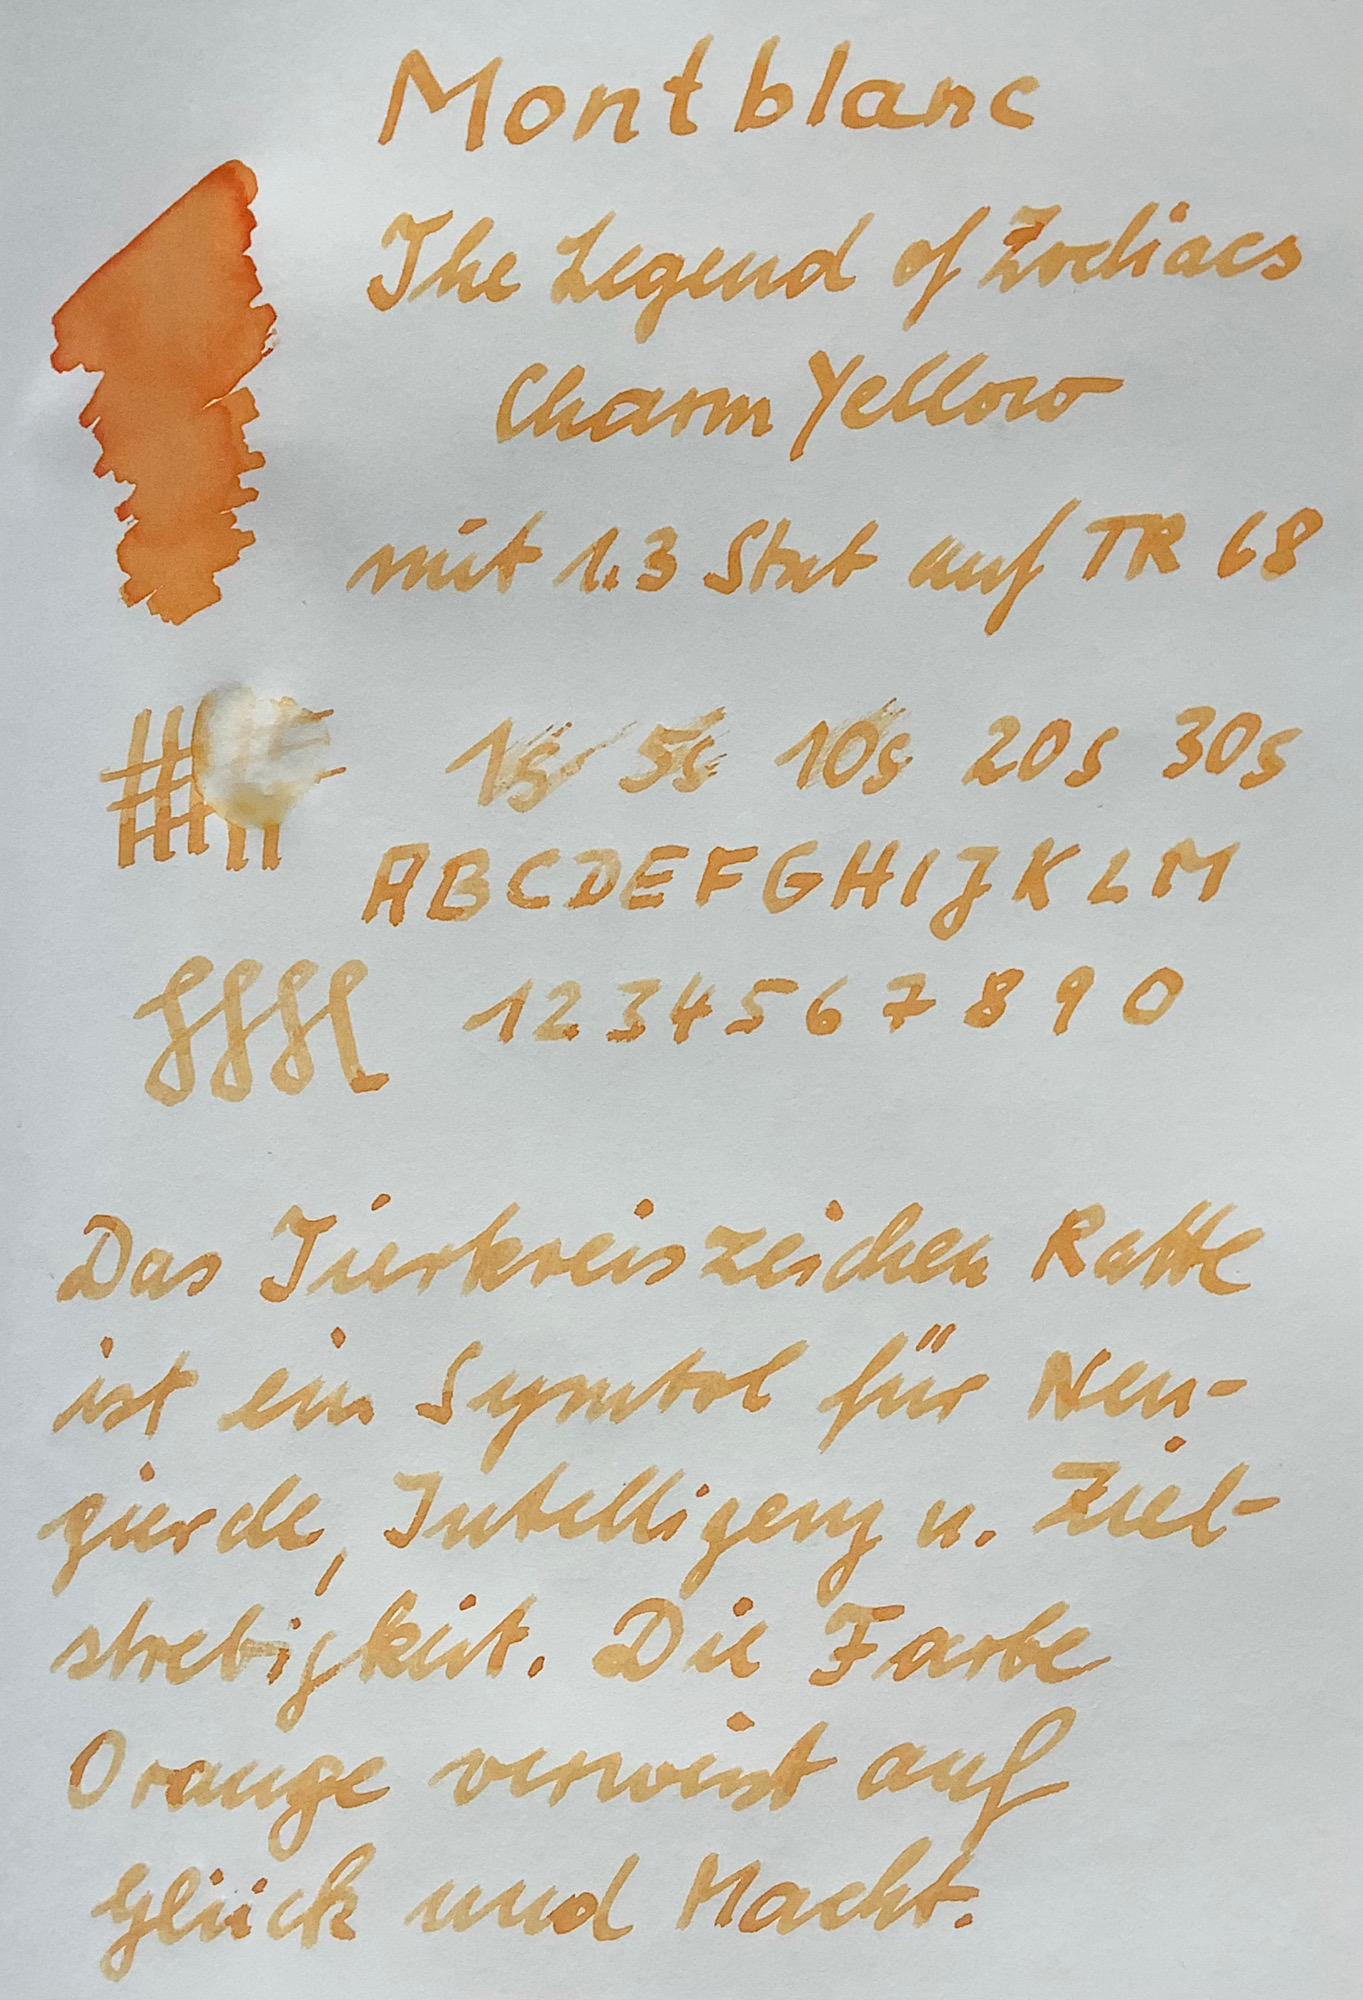 Montblanc
The Legend of Zodiacs
Charm Yellow
mit 1.3 Stub auf TR 68
1s 5s 10s 20s 30s
ABCDEFGHIJKLM
1234567890
Das Tierkreiszeichen Ratte
ist ein Symbol für Neu-
gierde, Intelligenz u. Ziel-
strebigkeit. Die Farbe
Orange verweist auf
Glück und Macht.